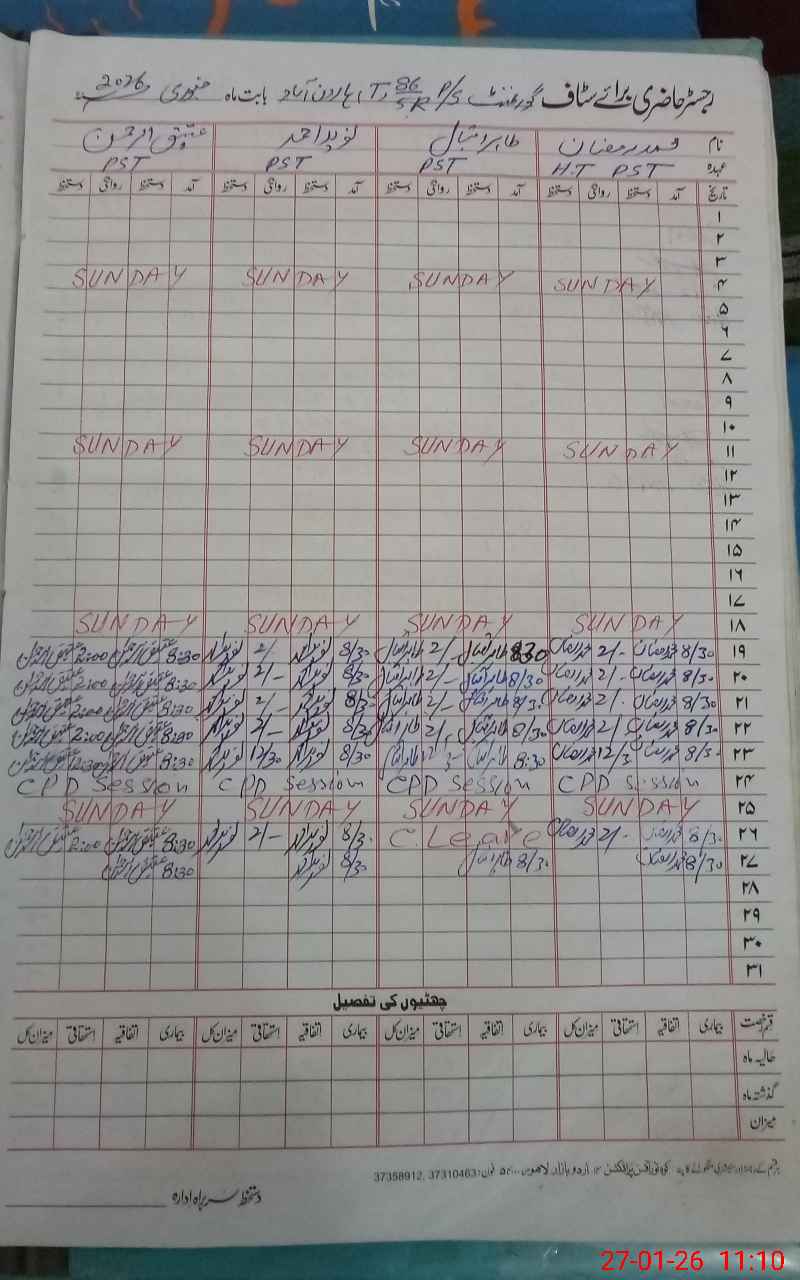 رجسٹر حاضری برائے سٹاف گورنمنٹ P/S 86/5R (T) ہارون آباد بابت ماہ جنوری 2026
نام محمد رمضان طاہر اقبال نوید احمد عتیق الرحمن
عہدہ H.T PST PST PST PST
تاریخ آمد دستخط روانگی دستخط آمد دستخط روانگی دستخط آمد دستخط روانگی دستخط آمد دستخط روانگی دستخط
۱
۲
۳
۴ SUNDAY SUNDAY SUNDAY SUNDAY
۵
۶
۷
۸
۹
۱۰
۱۱ SUNDAY SUNDAY SUNDAY SUNDAY
۱۲
۱۳
۱۴
۱۵
۱۶
۱۷
۱۸ SUNDAY SUNDAY SUNDAY SUNDAY
۱۹ 8/30 محمد رمضان 2/- محمد رمضان 8:30 طاہر اقبال 2/- طاہر اقبال 8/30 نوید احمد 2/- نوید احمد 8:30 عتیق الرحمن 2:00 عتیق الرحمن
۲۰ 8/30 محمد رمضان 2/- محمد رمضان 8/30 طاہر اقبال 2/- طاہر اقبال 8/30 نوید احمد 2/- نوید احمد 8:30 عتیق الرحمن 2:00 عتیق الرحمن
۲۱ 8/30 محمد رمضان 2/- محمد رمضان 8/30 طاہر اقبال 2/- طاہر اقبال 8/30 نوید احمد 2/- نوید احمد 8:30 عتیق الرحمن 2:00 عتیق الرحمن
۲۲ 8/30 محمد رمضان 2/- محمد رمضان 8/30 طاہر اقبال 2/- طاہر اقبال 8/30 نوید احمد 2/- نوید احمد 8:30 عتیق الرحمن 2:00 عتیق الرحمن
۲۳ 8/30 محمد رمضان 12/30 محمد رمضان 8:30 طاہر اقبال طاہر اقبال 8/30 نوید احمد 12/30 نوید احمد 8:30 عتیق الرحمن 12:30 عتیق الرحمن
۲۴ CPD Session CPD Session CPD Session CPD Session
۲۵ SUNDAY SUNDAY SUNDAY SUNDAY
۲۶ 8/30 محمد رمضان 2/- محمد رمضان C.Leave 8/30 نوید احمد 2/- نوید احمد 8:30 عتیق الرحمن 2:00 عتیق الرحمن
۲۷ 8/30 محمد رمضان 8/30 طاہر اقبال 8/30 نوید احمد 8:30 عتیق الرحمن
۲۸
۲۹
۳۰
۳۱
چھٹیوں کی تفصیل
قسم رخصت بیماری اتفاقیہ استحقاقی میزان کل بیماری اتفاقیہ استحقاقی میزان کل بیماری اتفاقیہ استحقاقی میزان کل بیماری اتفاقیہ استحقاقی میزان کل
حالیہ ماہ
گذشتہ ماہ
میزان
اردو بازار لاہور فون: 37310463, 37358912
دستخط سربراہ ادارہ
27-01-26 11:10